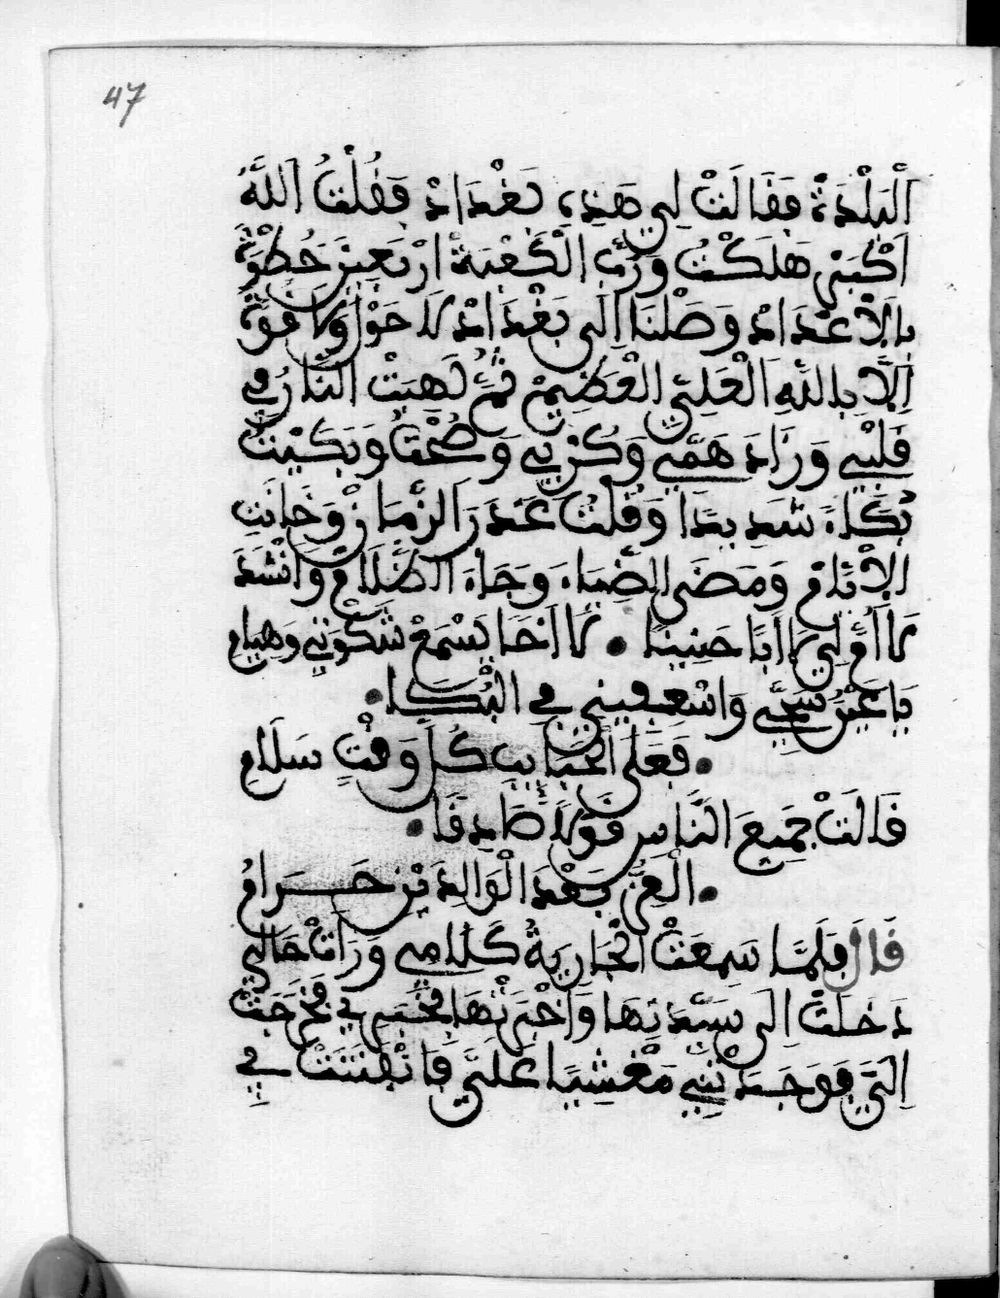 47
الْبَلْدَةُ فَقَالَتْ لِي هَذِهِ بَغْدَادْ فَقُلْتُ اللَّهُ
اَكْبَرْ هَلَكْتُ وَرَبِّ الْكَعْبَةْ اَرْبَعِينَ خُطْوَةً
بِالْاَعْدَادْ وَصَلْنَا اِلَى بَغْدَادْ لَا حَوْلَ وَلَا قُوَّةَ
اِلَّا بِاللَّهِ الْعَلِيِّ الْعَظِيمْ ثُمَّ لَهِبَتْ النَّارُ فِي
قَلْبِي وَزَادَ هَمِّي وَكَرْبِي وَصُحْتُ وَبَكَيْتُ
بُكَاءً شَدِيدًا وَقُلْتُ غَدَرَ الزَّمَانْ وَخَانَتِ
الْاَيَّامْ وَمَضَى الضِّيَاءُ وَجَاءَ الظَّلَامْ وَاَنْشَدَ
لَا اُمَّ لِي لَا اَبًا حَنِينًا • لَا اَخَا يَسْمَعْ شَكْوَتِي وَهِيَامِ
يَا عَيْنُ سَحِّي وَاسْعِفِينِي فِي الْبُكَا •
• فَعَلَى الْحَبَايِبِ كُلَّ وَقْتٍ سَلَامِ
قَالَتْ جَمِيعَ النَّاسِ قَوْلًا صَادِقًا •
• الْعِزُّ بَعْدَ الْوَالِدَيْنِ حَرَامُ
قَالَ فَلَمَّا سَمِعَتْ الْجَارِيَةُ كَلَامِي وَرَاَتْ حَالِي
دَخَلَتْ اِلَى سَيِّدَتِهَا وَاَخْبَرَتْهَا بِخَبَرِي فَخَرَجَتْ
اِلَيَّ فَوَجَدَتْنِي مَغْشِيًا عَلَيَّ فَالْتَفَتَتْ فِي